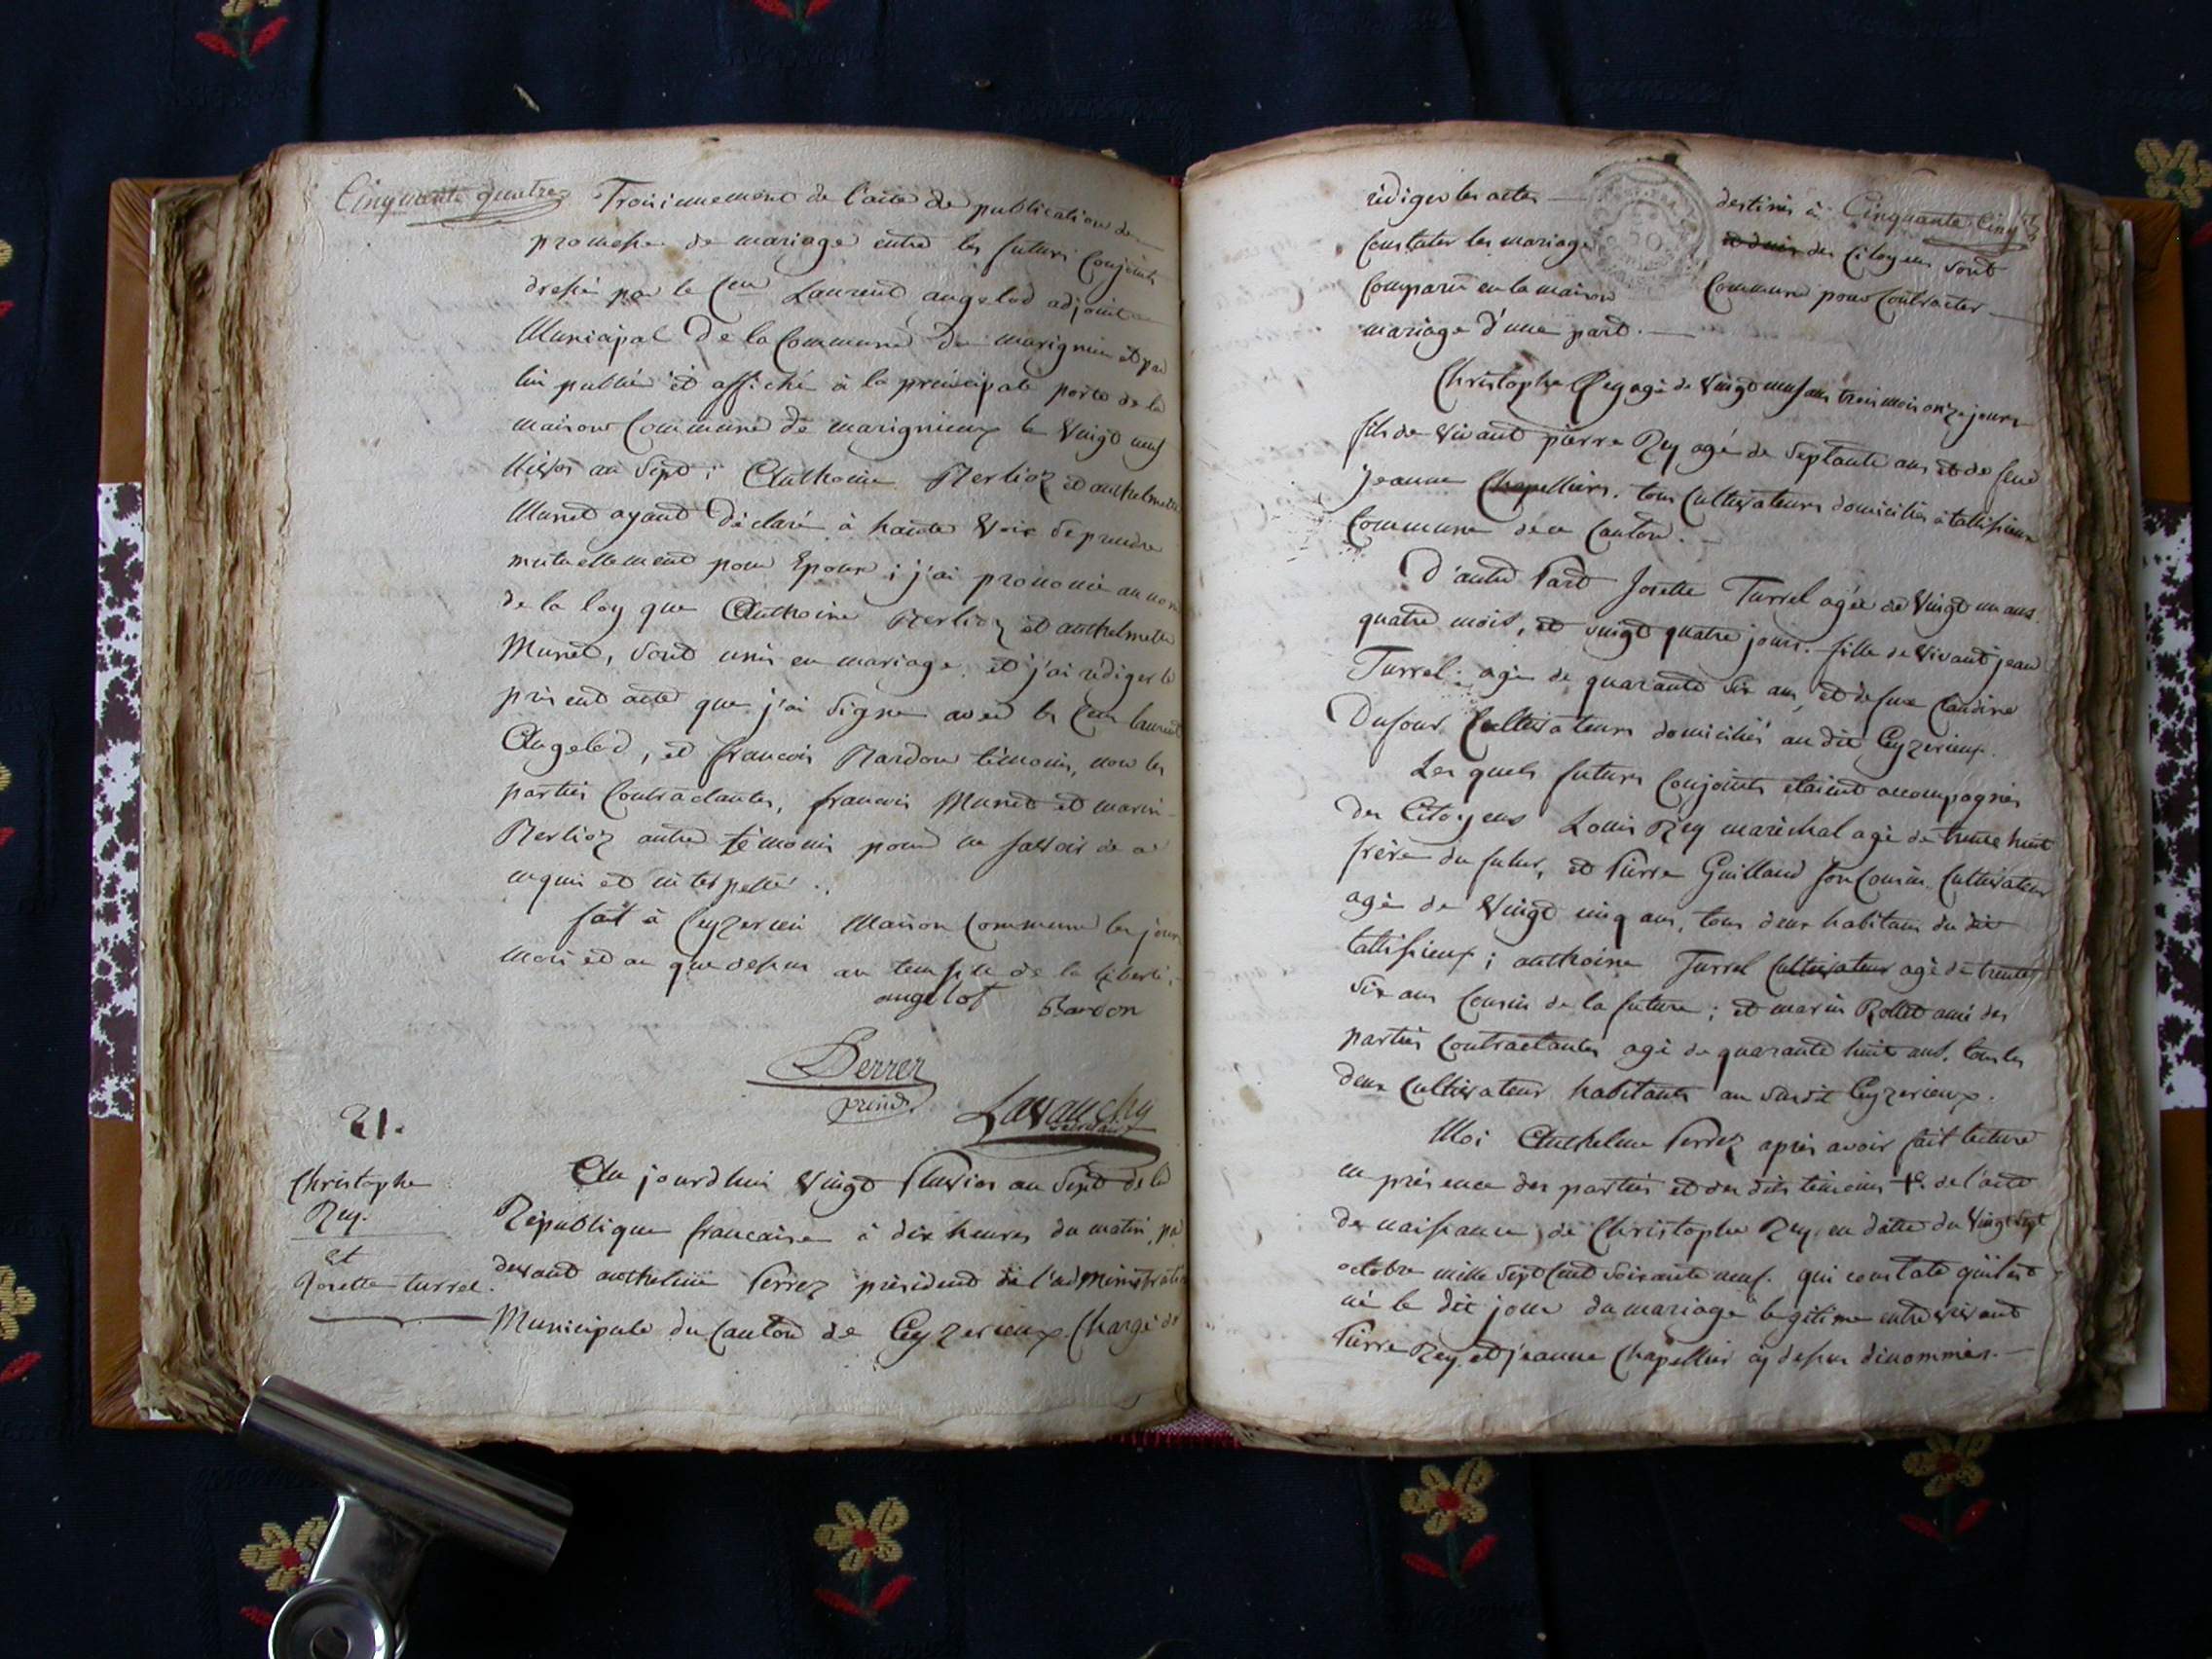 Cinquante quatre
Troisiemement de l'acte de publication de
promesse de mariage entre les futurs Conjoints
dressé par le Cen Laurent angelod adjoint
Municipal De la Commune de marignieu et par
lui publié et affiché à la principale porte de la
maison Commune de marignieux le Vingt neuf
Nivos an Sept ; Anthoine Berlioz et anthelmette
Munet ayant Déclaré à haute Voix se prendre
mutuellement pour Epoux ; j'ai prononcé au nom
de la loy que Anthoine Berlioz et anthelmette
Munet, sont unis en mariage et j'ai rédiger le
présent acte que j'ai signé avec les Cen laurent
Angelod, et francois Bardon témoins, non les
parties Contractantes, francois Munet et marin
Berlioz autre témoins pour ne savoir de ce
enquis et interpellé ..
fait à Ceyzerieu Maison Commune les jour
Mois et an que dessus au temple de la liberté ;
angelot Bardon
Perrer
présid.
Lavauchy
secretair
21.
Christophe
Rey.
et
Josette turrel.
Au jourdhui Vingt Pluvios an Sept de la
Republique francaise à dix heures du matin, pa
devant anthelme Perrez président de l'administratio
Municipale du Canton de Ceyzerieux Chargé de
rédiger les actes destinés à Cinquante Cinq
Constater les mariage des Citoyens sont
Comparu en la maison Commune pour Contracter
mariage d'une part.
Christophe Rey agé de Vingt neuf ans trois mois onze jours
fils de Vivant pierre Rey agé de Septante ans et de feue
Jeanne Chapelliers. tous Cultivateurs domiciliés à tallissieux
Commune de ce Canton.
D'autre Part Josette Turrel agée de Vingt un ans
quatre mois, et vingt quatre jours. fille de Vivant jean
Turrel ; agé de quarante six ans, et de feue Claudine
Dufour Cultivateurs domiciliés au dit Ceyzerieux.
Les quels futurs Conjoints étaient accompagnés
des Citoyens Louis Rey maréchal agé de trente huit
frère du futur, et Pierre Guilland son Cousin Cultivateur
agé de Vingt cinq ans, tous deux habitans du dit
tallissieux ; anthoine Turrel Cultivateur agé de trente
six ans Cousin de la future ; et marin Rollet ami des
parties Contractantes agé de quarante huit ans, tous les
deux Cultivateur habitants au susdit Ceyzerieux.
Moi Anthelme Perrez après avoir fait lecture
en présence des parties et des dits témoins 1°. de l'acte
de naissance de Christophe Rey, en datte du Vingt sept
octobre mille sept cent soixante neuf. qui constate qu'il est
né le dit jour du mariage legitime entre vivant
Pierre Rey, et jeanne Chapellier cy dessus dénommés.